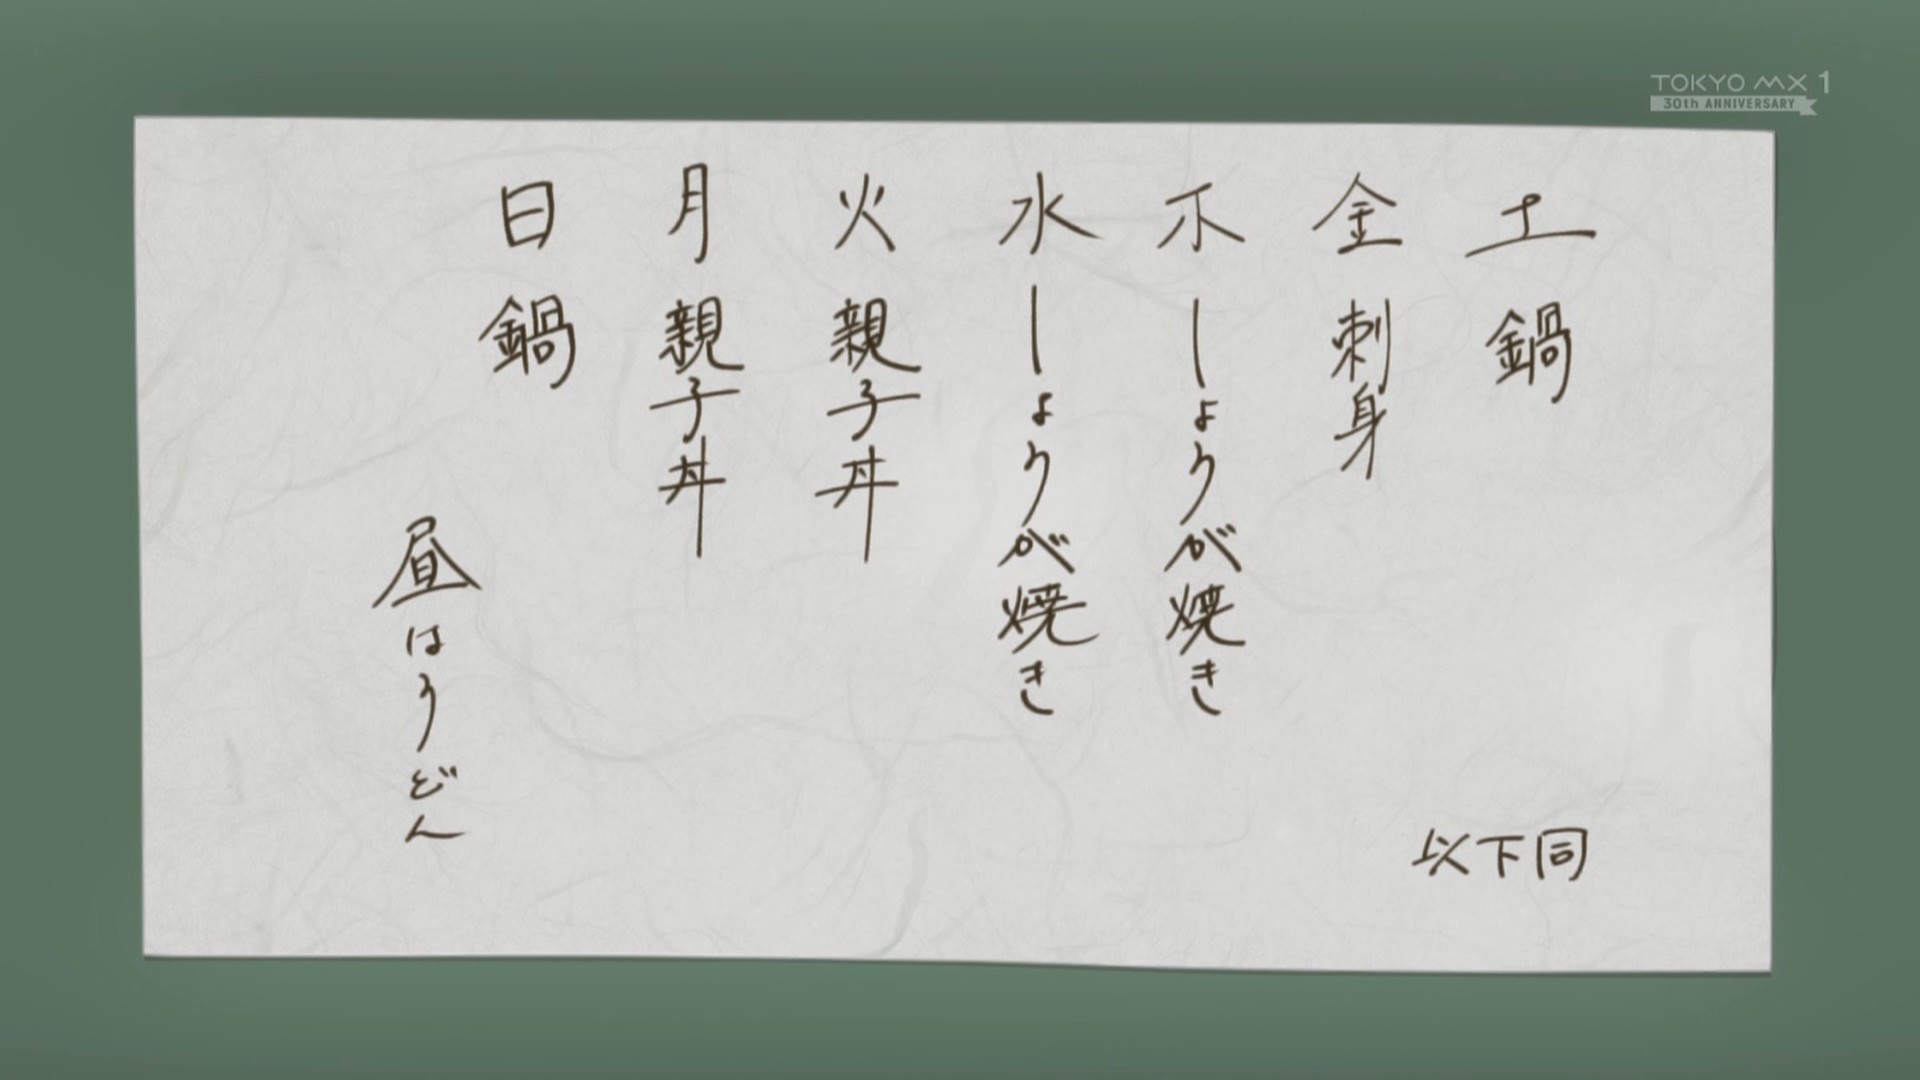 土 鍋
金 刺身
木 しょうが焼き
水 しょうが焼き
火 親子丼
月 親子丼
日 鍋
昼はうどん
以下同
TOKYO MX 1
30th ANNIVERSARY